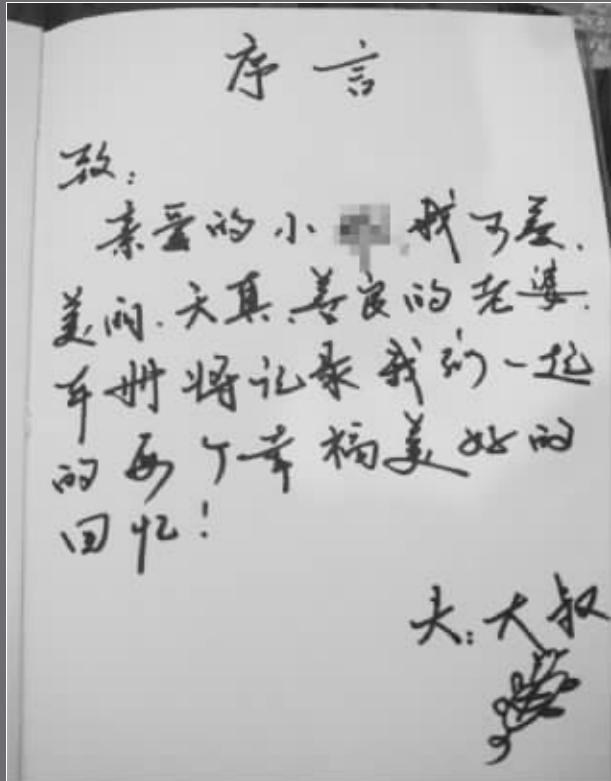 序言
致:
亲爱的小 我可爱.
美丽.天真.善良的老婆.
本册将记录我们一起
的每个幸福美好的
回忆!
夫:大叔